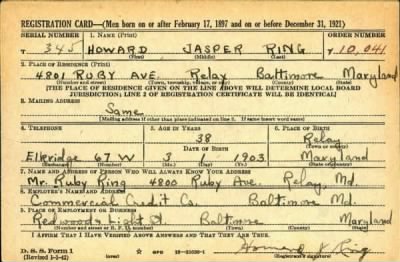 REGISTRATION CARD—(Men born on or after February 17, 1897 and on or before December 31, 1921)
SERIAL NUMBER 1. NAME (Print) ORDER NUMBER
T 345 HOWARD JASPER RING T 10,041
(First) (Middle) (Last)
2. PLACE OF RESIDENCE (Print)
4801 RUBY AVE. Relay Baltimore Maryland
(Number and street) (Town, township, village, or city) (County) (State)
[THE PLACE OF RESIDENCE GIVEN ON THE LINE ABOVE WILL DETERMINE LOCAL BOARD
JURISDICTION; LINE 2 OF REGISTRATION CERTIFICATE WILL BE IDENTICAL]
3. MAILING ADDRESS
Same
[Mailing address if other than place indicated on line 2. If same insert word same]
4. TELEPHONE 5. AGE IN YEARS 6. PLACE OF BIRTH
38 Relay
DATE OF BIRTH (Town or county)
Elkridge 67 W 3 1 1903 Maryland
(Exchange) (Number) (Mo.) (Day) (Yr.) (State or country)
7. NAME AND ADDRESS OF PERSON WHO WILL ALWAYS KNOW YOUR ADDRESS
Mr. Ruby Ring 4800 Ruby Ave. Relay, Md.
8. EMPLOYER'S NAME AND ADDRESS
Commercial Credit Co. Baltimore Md.
9. PLACE OF EMPLOYMENT OR BUSINESS
Redwood & Light St. Baltimore Maryland
(Number and street or R. F. D. number) (Town) (County) (State)
I AFFIRM THAT I HAVE VERIFIED ABOVE ANSWERS AND THAT THEY ARE TRUE.
D. S. S. Form 1
(Revised 1-5-42) GPO
Howard J. Ring